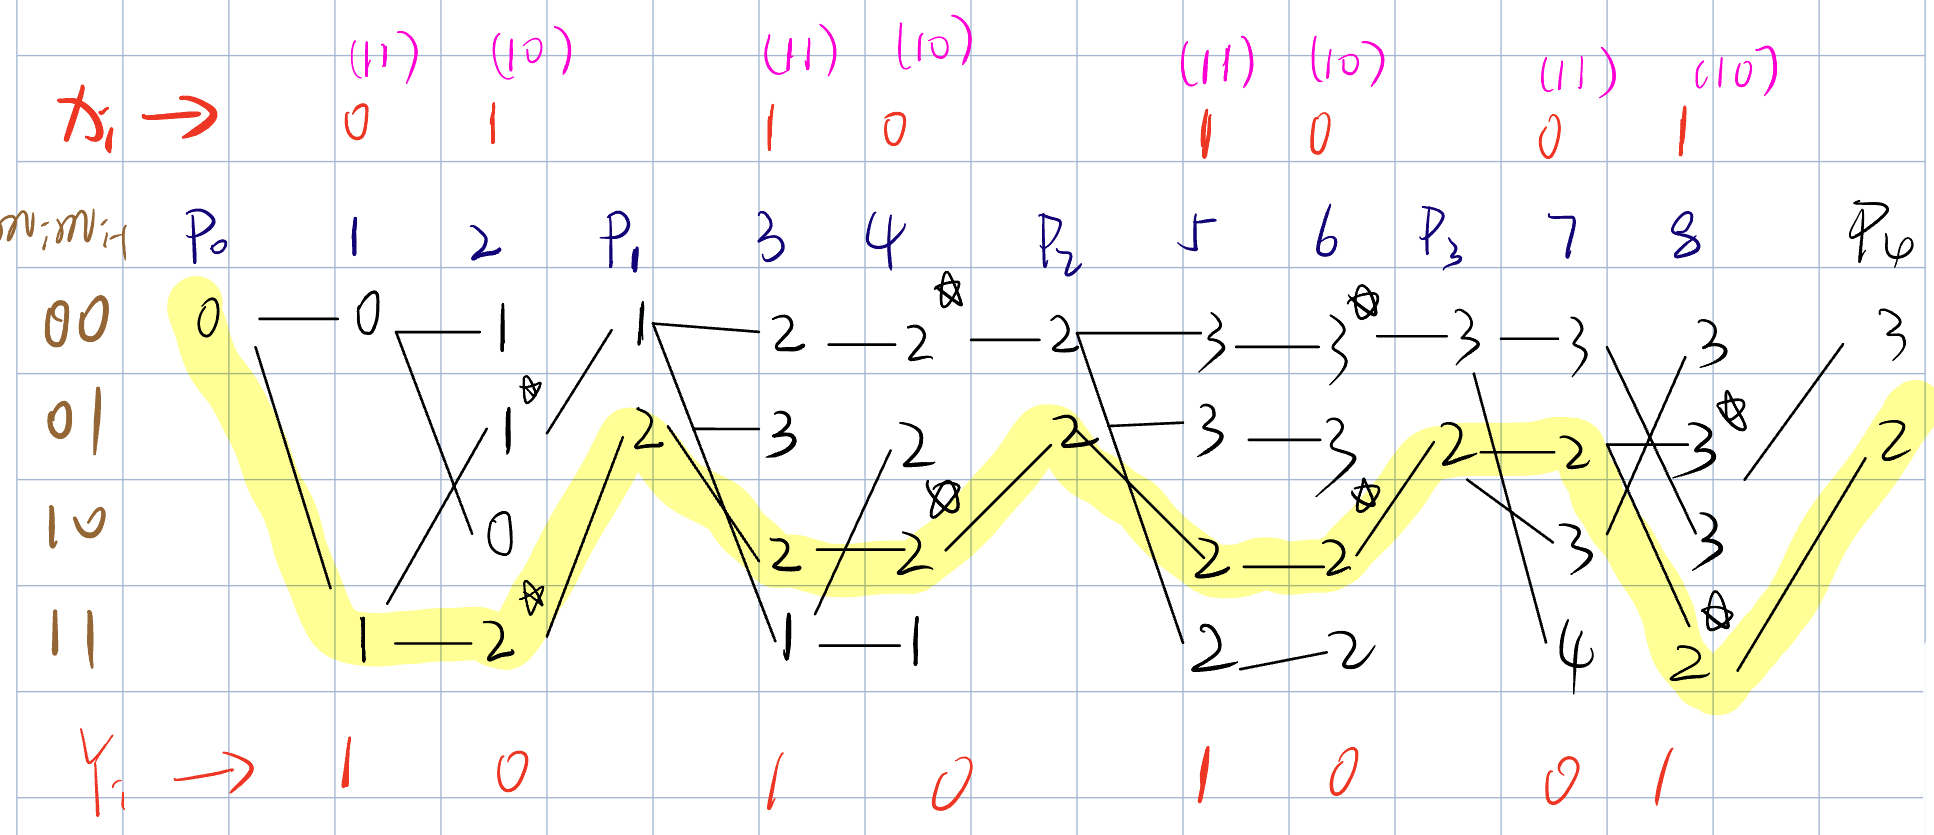 (11) (10) (11) (10) (11) (10) (11) (10)
xi → 0 1 1 0 1 0 0 1
mimi-1 P0 1 2 P1 3 4 P2 5 6 P3 7 8 P4
00 0 0 1 1 2 2 2 3 3 3 3 3 3
01 1 2 3 2 2 3 3 2 2 3 2
10 0 2 2 2 2 3 3
11 1 2 1 1 2 2 4 2
Yi → 1 0 1 0 1 0 0 1